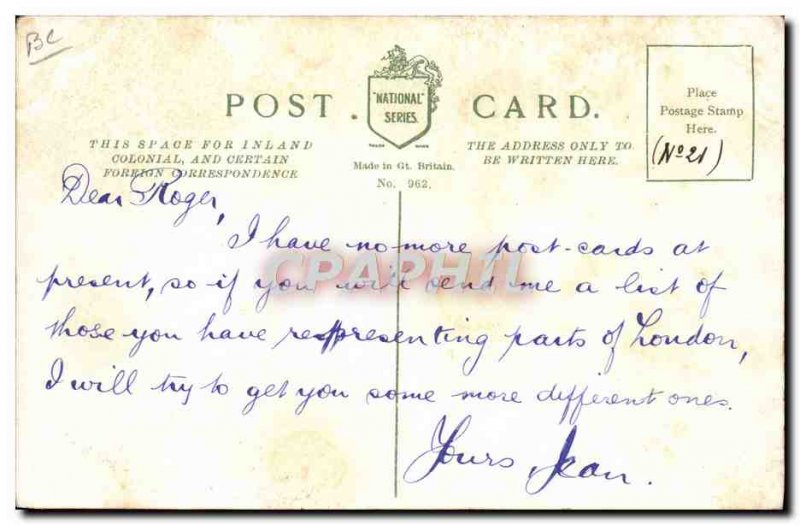 BC
POST CARD.
"NATIONAL" SERIES.
TRADE MARK
Place
Postage Stamp
Here.
(No 21)
THIS SPACE FOR INLAND
COLONIAL, AND CERTAIN
FOREIGN CORRESPONDENCE
Made in Gt. Britain.
No. 962.
THE ADDRESS ONLY TO
BE WRITTEN HERE.
Dear Roger,
I have no more post-cards at
present, so if you will send me a list of
those you have representing parts of London,
I will try to get you some more different ones.
Yours, Jean.
CPAPHIL